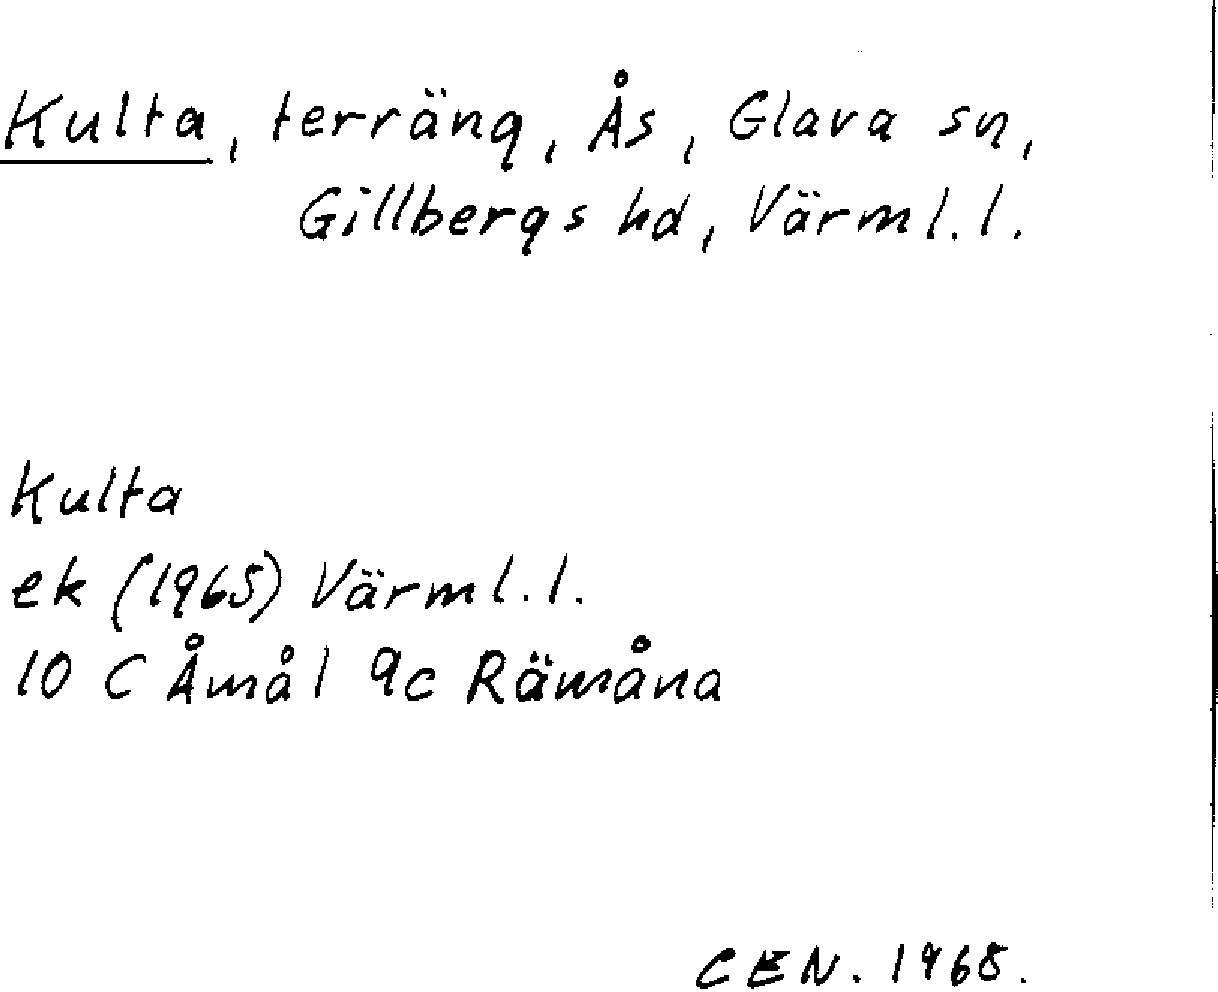 Kulta, terräng, Ås, Glava sn,
Gillbergs hd, Värml. l.
Kulta
ek (1965) Värml. l.
10 C Åmål 9c Rämåna
CEN. 1968.